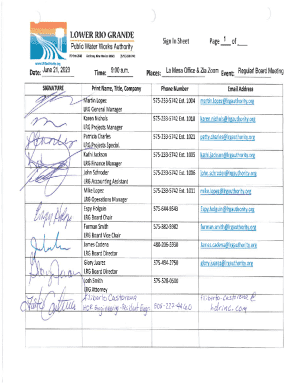 LOWER RIO GRANDE
Public Water Works Authority
Sign In Sheet
Page 1 of
Date: June 21, 2023
Time: 9:00 a.m.
Places: La Mesa Office & Via Zoom
Event: Regular Board Meeting
SIGNATURE
Print Name, Title, Company
Phone Number
Email Address
Martin Lopez
LRG General Manager
575-233-5742 Ext. 1004
martin.lopez@lrgauthority.org
Karen Nichols
LRG Projects Manager
575-233-5742 Ext. 1018
karen.nichols@lrgauthority.org
Patricia Charles
LRG Projects Special.
575-233-5742 Ext. 1021
patty.charles@lrgauthority.org
Kathi Jackson
LRG Finance Manager
575-233-5742 Ext. 1005
kathi.jackson@lrgauthority.org
John Schroder
LRG Accounting Assistant
575-233-5742 Ext.
john.schroder@lrgauthority.org
Mike Lopez
LRG Operations Manager
575-233-5742 Ext. 1011
mike.lopez@lrgauthority.org
Espy Holguin
LRG Board Chair
575-644-9543
Espy.holguin@lrgauthority.org
Furman Smith
LRG Board Vice Chair
575-382-5982
furman.smith@lrgauthority.org
James Cadena
LRG Board Director
james.cadena@lrgauthority.org
Glory Juarez
LRG Board Director
glory.juarez@lrgauthority.org
Josh Smith
LRG Attorney
Filiberto Castorena
HDR Engineering - Resident Engr.
filiberto.castorena@
hdrinc.com